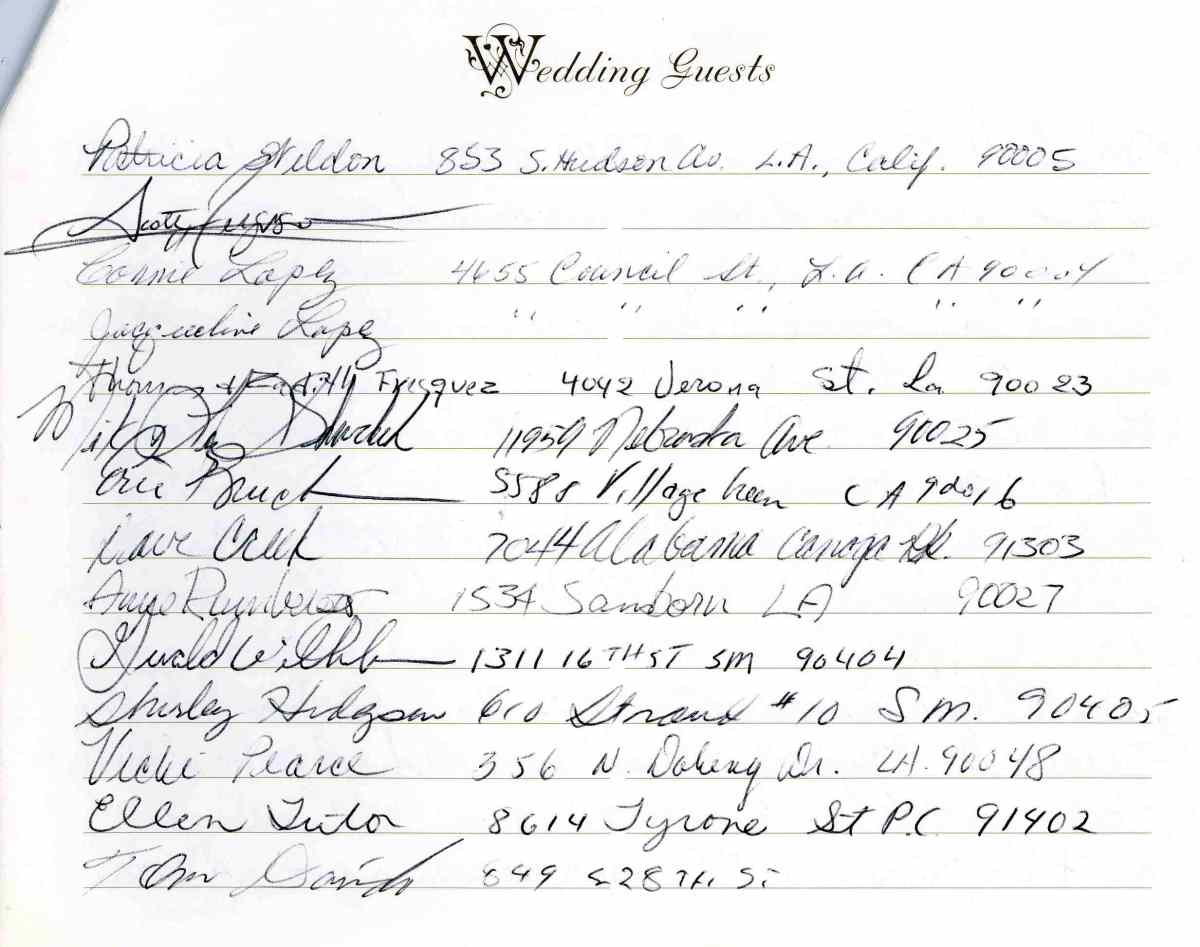 Wedding Guests
Patricia Weldon 853 S. Hudson Av. L.A., Calif. 90005
Scott
Connie Lopez 4655 Council St., L.A. CA 90004
Jacqueline Lopez " " " " "
Thomas + Faith Frisquez 4042 Verona St. La 90023
11959 Nebraska Ave 90025
5588 Village Green CA 90016
Dave Creek 7044 Alabama Canoga Pk. 91303
Anne 1534 Sanborn LA 90027
Gerald 1311 16TH ST SM 90404
Shirley Hodgson 610 Strand #10 S.M. 90405
Vicki Pearce 356 N. Doheny Dr. LA. 90048
Ellen Tutor 8614 Tyrone St P.C 91402
Tom 849 E 28TH ST